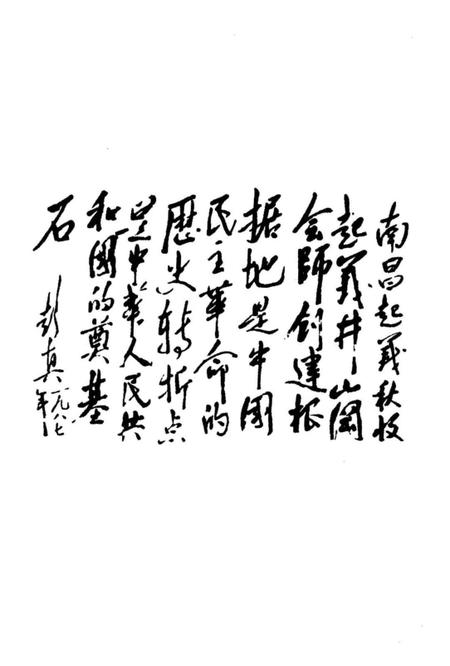 南昌起义秋收
起义井冈山
会师创建根
据地是中國
民主革命的
歷史转折点
是中华人民共
和國的奠基
石
彭真一九八七
年